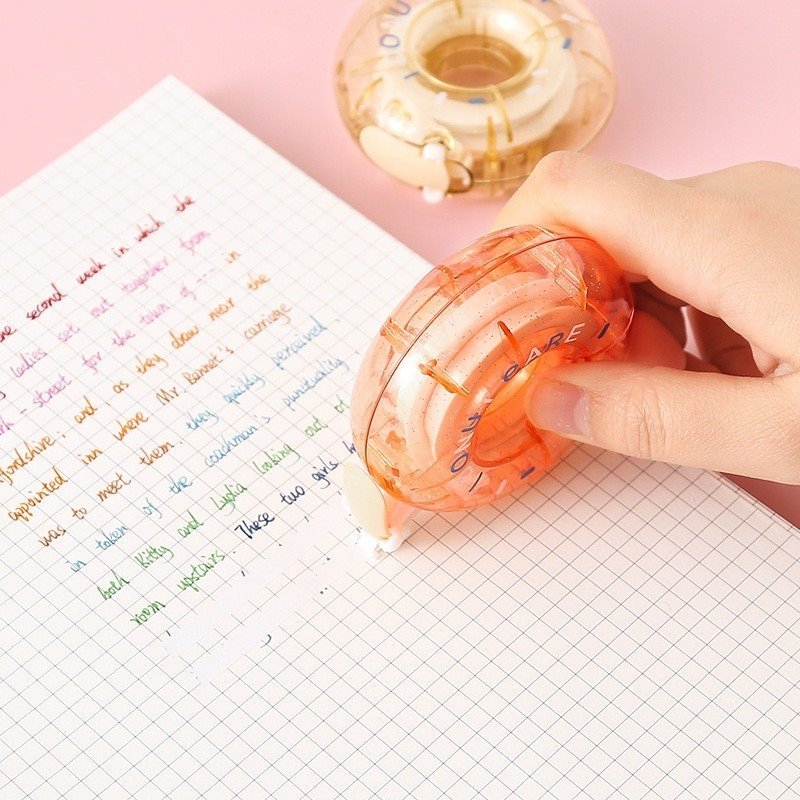 the second week in which the
ladies set out together from
- street for the town of --- in
; and, as they drew near the
appointed inn where Mr. Bennet's carriage
was to meet them. they quickly perceived,
in token of the coachman's punctuality,
both Kitty and Lydia looking out of
room upstairs. These two girls
YOU ARE
OU